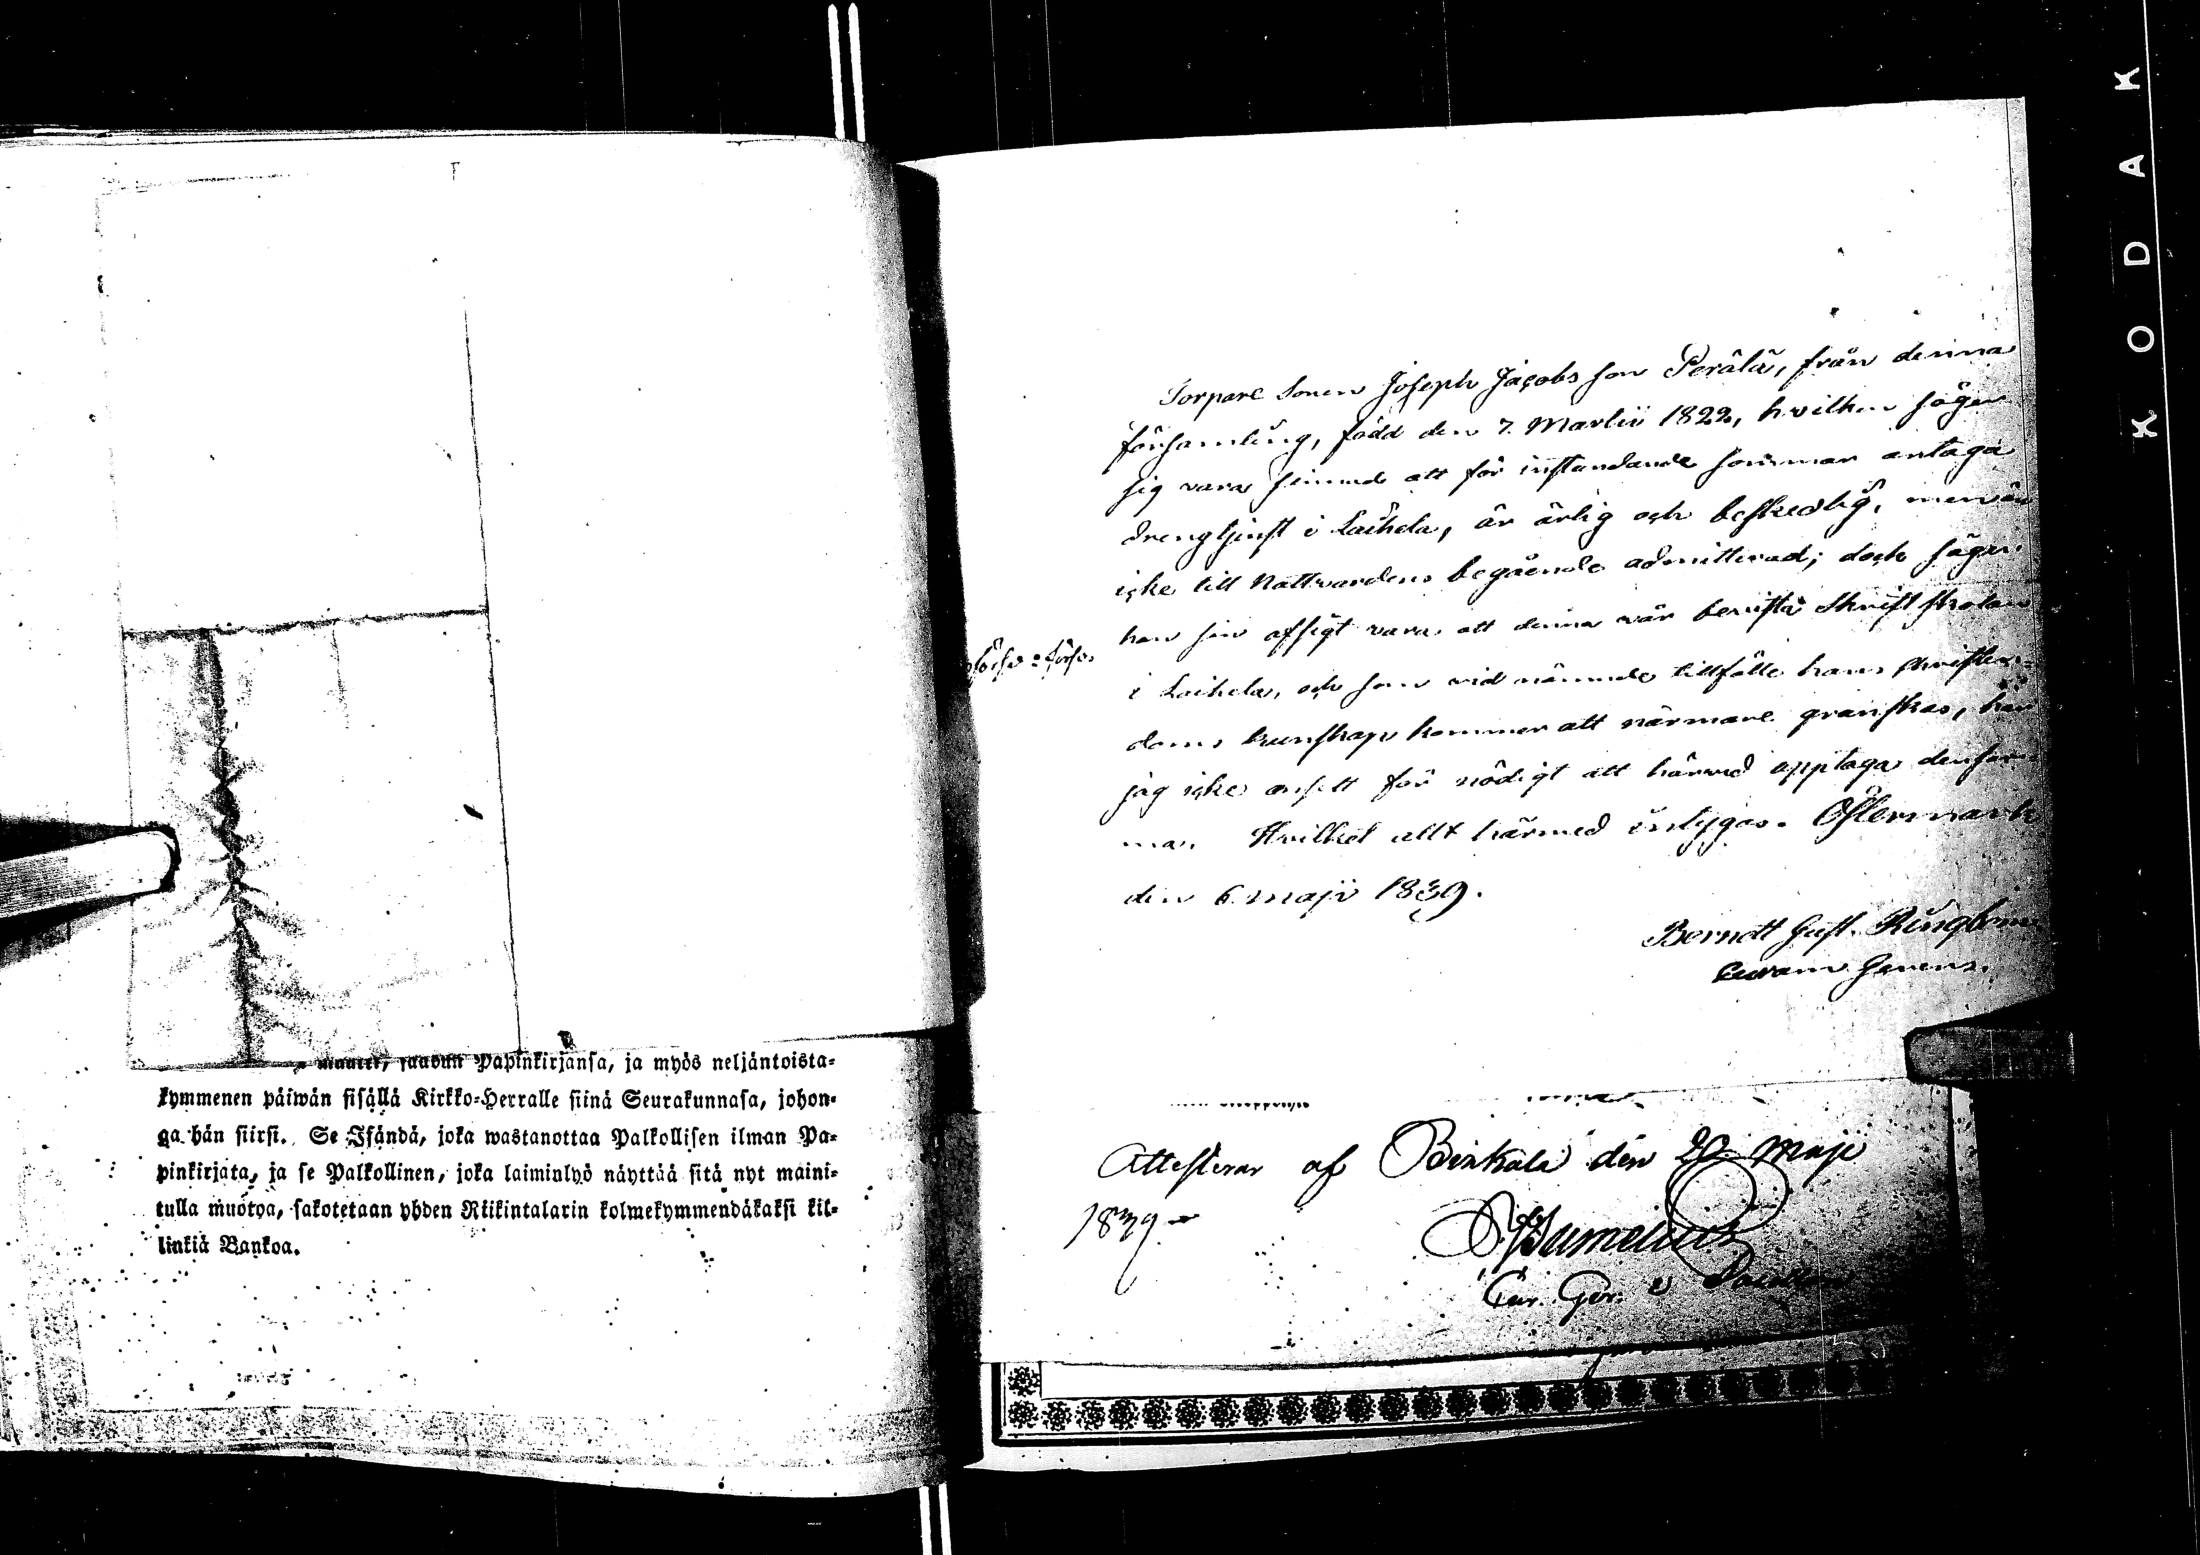 Papinkirjansa, ja myös neljäntoista-
kymmenen päiwän sisällä Kirkko-Herralle siinä Seurakunnasa, johon-
ga hän siirsi. Se Isändä, joka wastanottaa Palkollisen ilman Pa-
pinkirjata, ja se Palkollinen, joka laiminlyö näyttää sitä nyt maini-
tulla muotoa, sakotetaan yhden Riikintalarin kolmekymmendäkaksi kil-
linkiä Bankoa.
Torpare Sonen Joseph Jacobs son Perälä, från denna
församling, född den 7. Martii 1822, hvilken säger
sig vara sinnad att för instundande sommar antaga
drengtjenst i Laihela, är ärlig och beskedlig, men än
icke till Nattvardens begående admitterad; dock säger
han sin afsigt vara att denna vår bevista Skriftskolan
i Laihela, och som vid nämnde tillfälle hans christen-
doms kunskap kommer att närmare granskas, har
jag icke ansett för nödigt att härmed upptaga densam-
ma. Hvilket allt härmed intygas. Östermark
den 6. maji 1839.
Berndt Gust. Ringbom
Curam Gerens.
Attesteras af den 20 Maji
1839
Cur. Ger.
KODAK